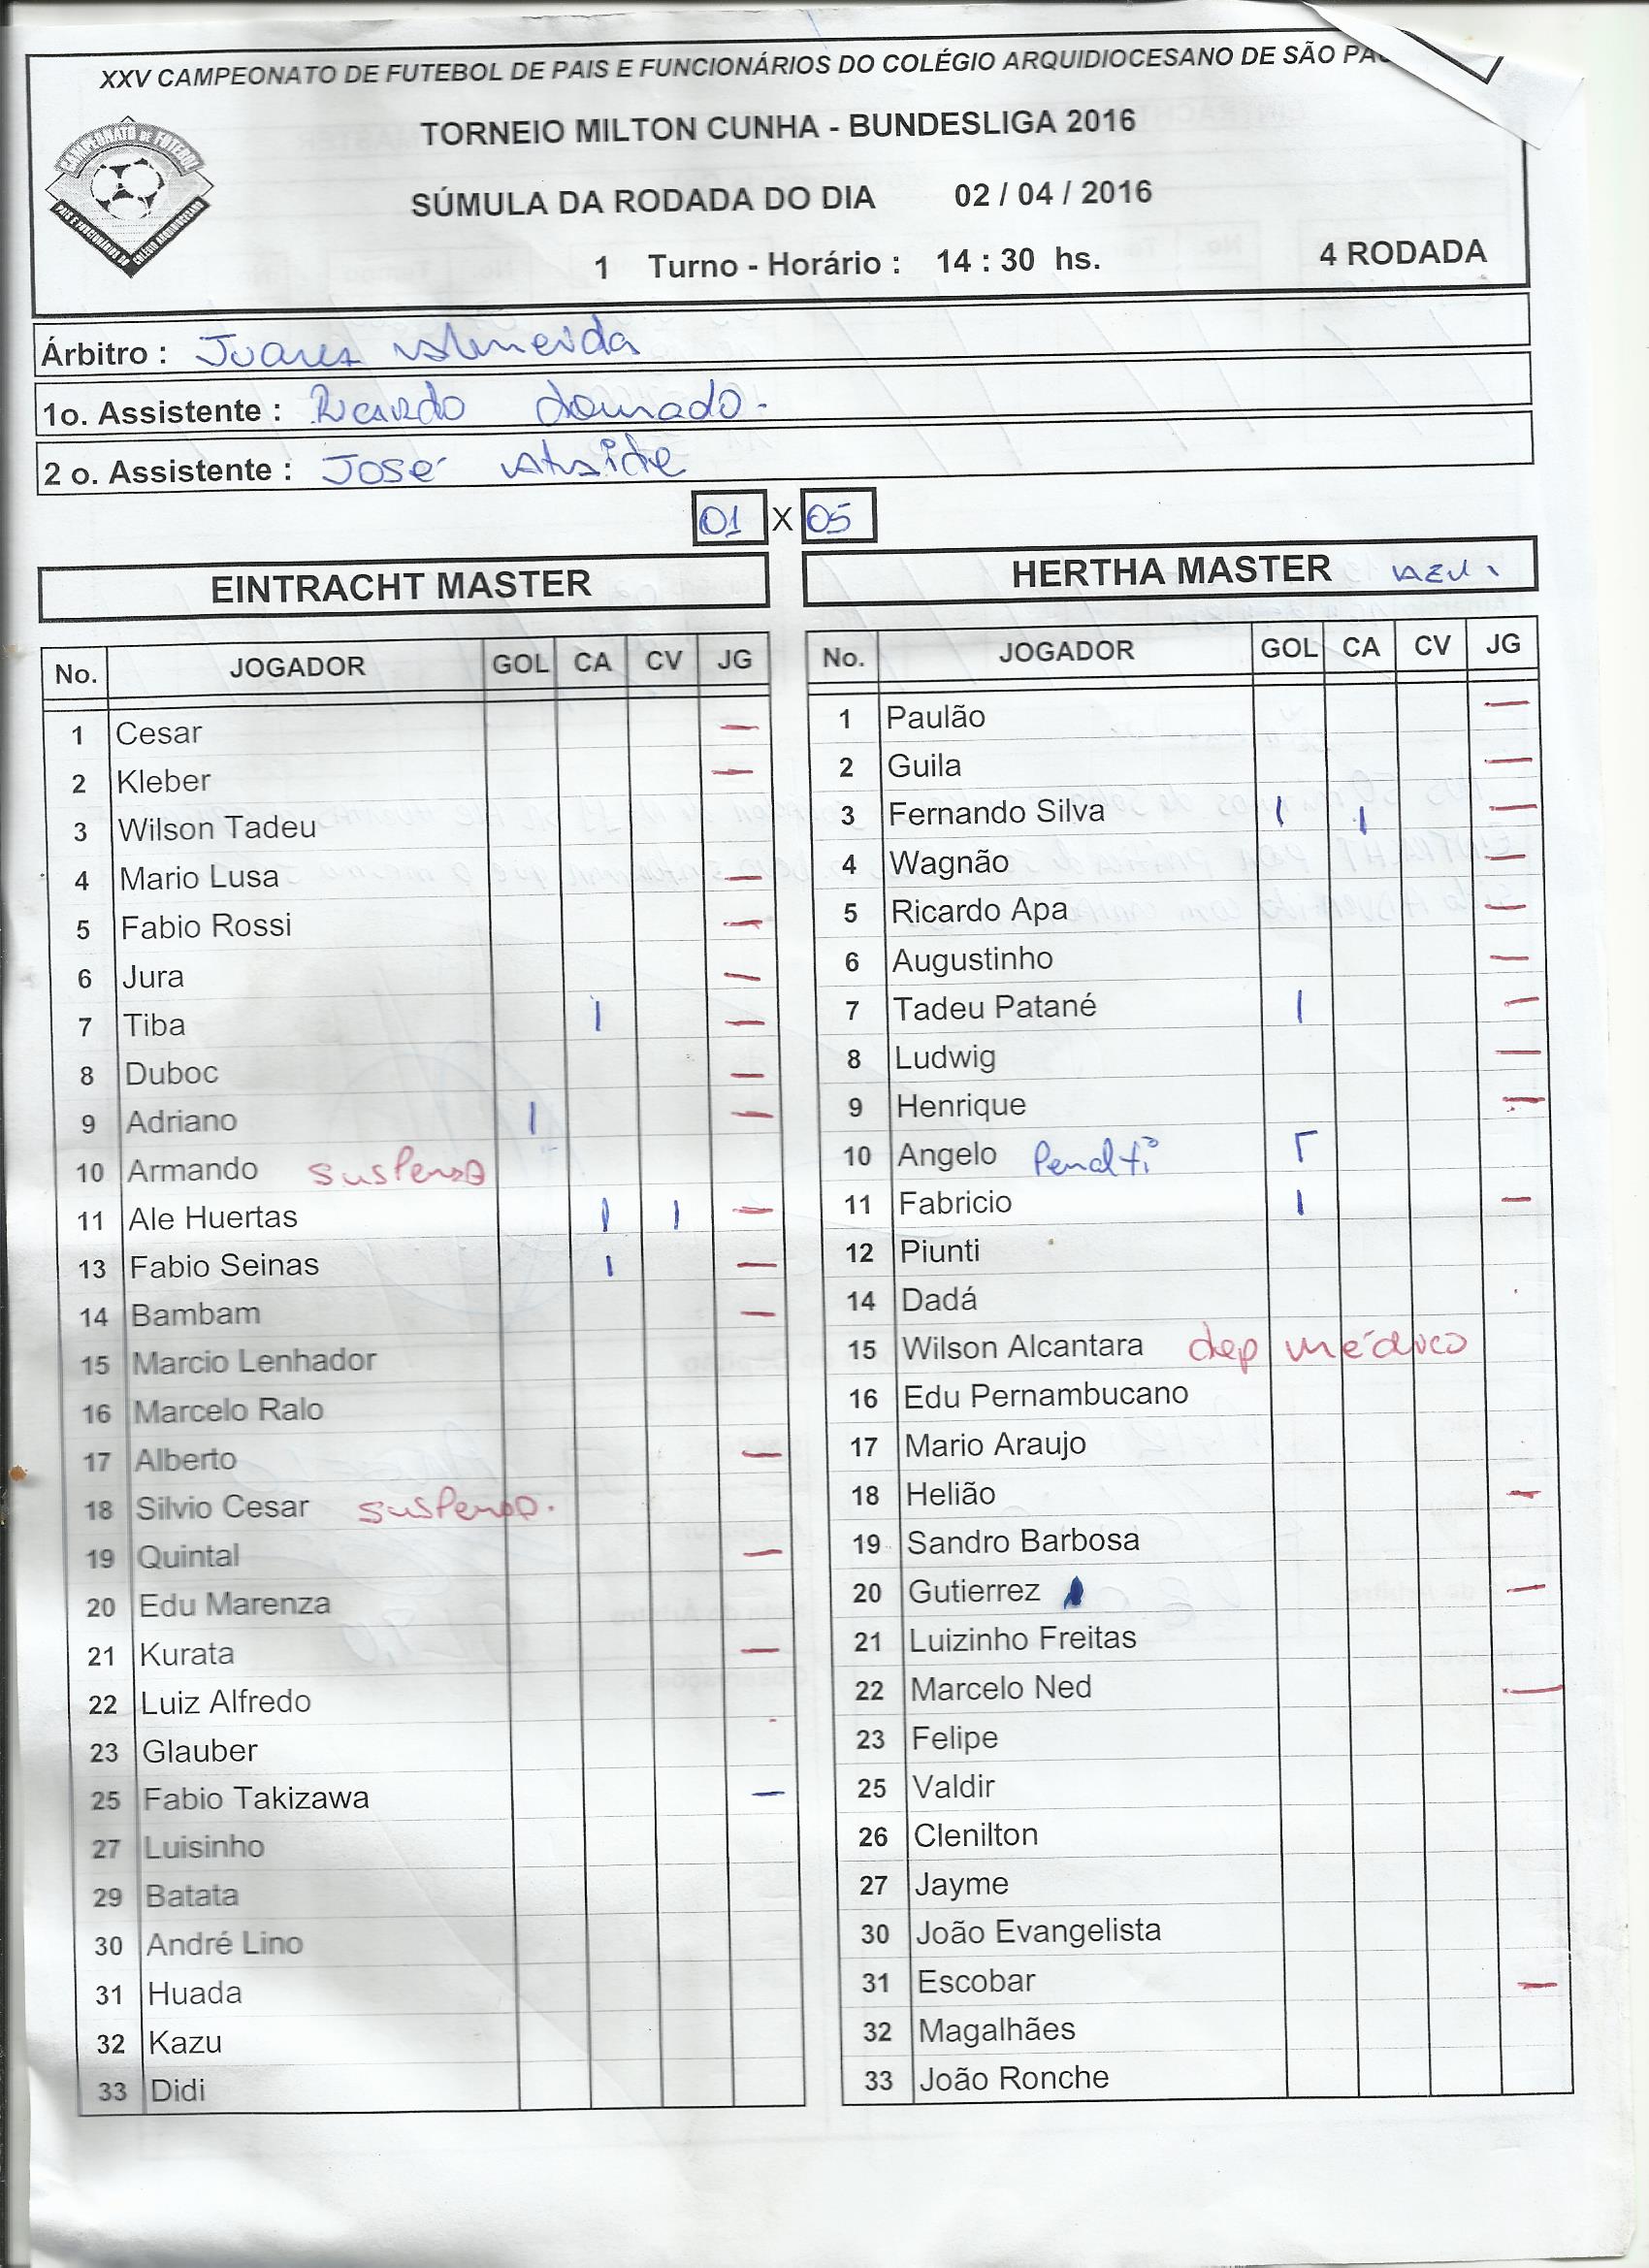 XXV CAMPEONATO DE FUTEBOL DE PAIS E FUNCIONÁRIOS DO COLÉGIO ARQUIDIOCESANO DE SÃO
CAMPEONATO DE FUTEBOL
TORNEIO MILTON CUNHA - BUNDESLIGA 2016
SÚMULA DA RODADA DO DIA 02 / 04 / 2016
1 Turno - Horário : 14 : 30 hs. 4 RODADA
Árbitro : Juarez Almeida
1o. Assistente : Ricardo dourado.
2 o. Assistente : José Ataide
01 X 05
EINTRACHT MASTER
No. JOGADOR GOL CA CV JG
1 Cesar —
2 Kleber —
3 Wilson Tadeu
4 Mario Lusa —
5 Fabio Rossi —
6 Jura —
7 Tiba | —
8 Duboc —
9 Adriano | —
10 Armando suspenso
11 Ale Huertas | | —
13 Fabio Seinas | —
14 Bambam —
15 Marcio Lenhador
16 Marcelo Ralo
17 Alberto —
18 Silvio Cesar suspenso.
19 Quintal —
20 Edu Marenza
21 Kurata —
22 Luiz Alfredo
23 Glauber
25 Fabio Takizawa —
27 Luisinho
29 Batata
30 André Lino
31 Huada
32 Kazu
33 Didi
HERTHA MASTER AZUL
No. JOGADOR GOL CA CV JG
1 Paulão —
2 Guila —
3 Fernando Silva | | —
4 Wagnão —
5 Ricardo Apa —
6 Augustinho —
7 Tadeu Patané | —
8 Ludwig —
9 Henrique —
10 Angelo Penalti
11 Fabricio | —
12 Piunti
14 Dadá
15 Wilson Alcantara dep médico
16 Edu Pernambucano
17 Mario Araujo
18 Helião —
19 Sandro Barbosa
20 Gutierrez —
21 Luizinho Freitas
22 Marcelo Ned —
23 Felipe
25 Valdir
26 Clenilton
27 Jayme
30 João Evangelista
31 Escobar —
32 Magalhães
33 João Ronche